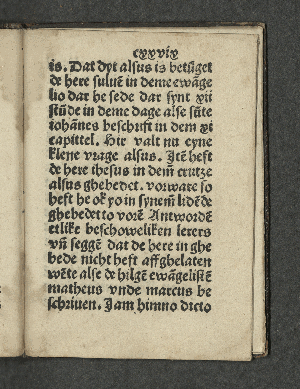 cxxvix
is. Dat dyt alsus is betüget
de here suluē in deme ewāge
lio dar he sede dar synt xii
stūde in deme dage alse sūte
iohānes beschrift in dem xi
capittel. Hir valt nu eyne
klene vrage alsus. Itē heft
de here ihesus in dem crutze
alsus ghebedet. vorware so
heft he ok yo in synem lidēde
ghebedet to vorē Antwordē
etlike beschoweliken lerers
vn̄ seggē dat de here in ghe
bede nicht heft affghelaten
wēte alse de hilgē ewāgelistē
matheus vnde marcus be
schriuen. Iam himno dicto